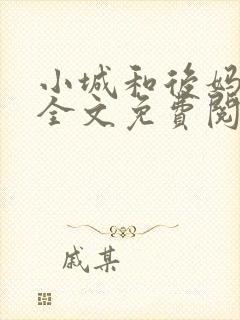 小城和後妈
全文免費閱
戚某